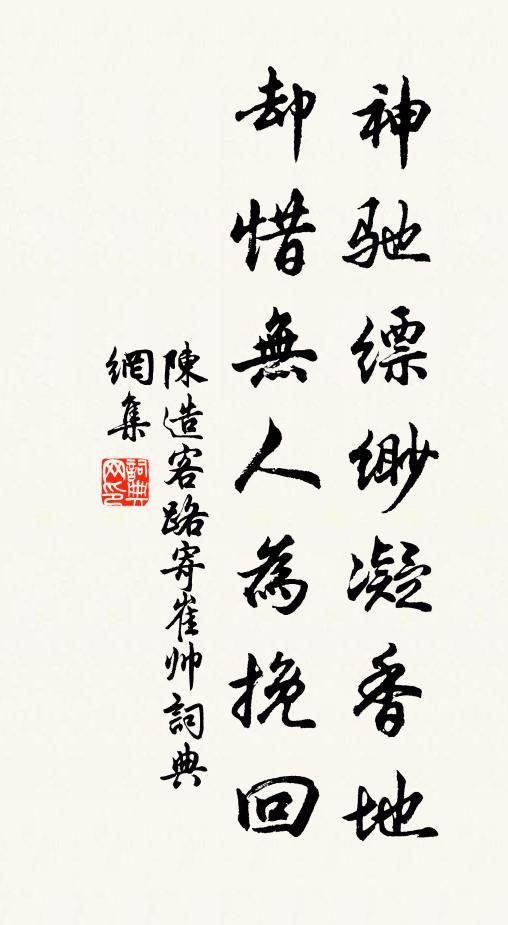 神驰缥缈凝香地
却惜無人為挽回
陳造客路寄崔帅詞典
網集
詞典
网印